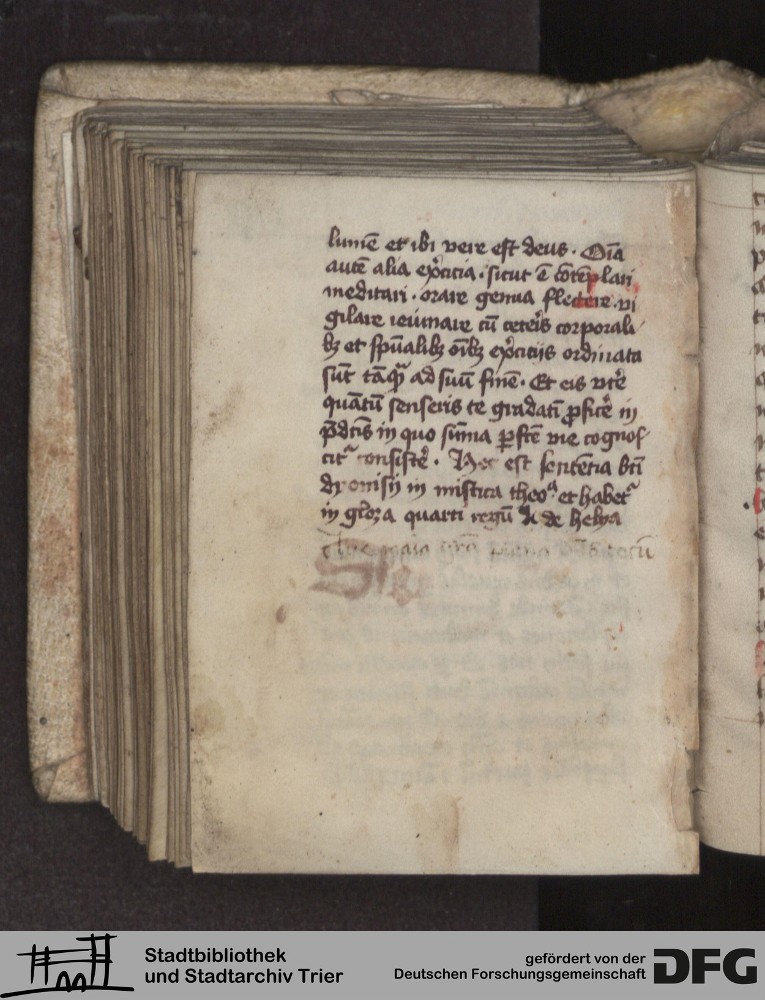 lumē et ibi vere est deus . Oīa
autē alia exͨcicia . sicut ē cōtēplari
meditari . orare genua flectere . vi
gilare ieiunare cū ceteris corporali
bꝫ et spūalibꝫ oībꝫ exͨcicijs ordinata
sūt tāqᷓ ad suū finē . Et eis vtē
quātū senseris te gradatī ꝓficē in
p̄dcīs in quo sūma ꝑfcē vie cognos
citᷓ consistē . Hec est sentētia btī
dyonisij in mistica theoᵃ. et habetᷓ
in glosa quarti regū de helya
Stadtbibliothek
und Stadtarchiv Trier
gefördert von der
Deutschen Forschungsgemeinschaft
DFG